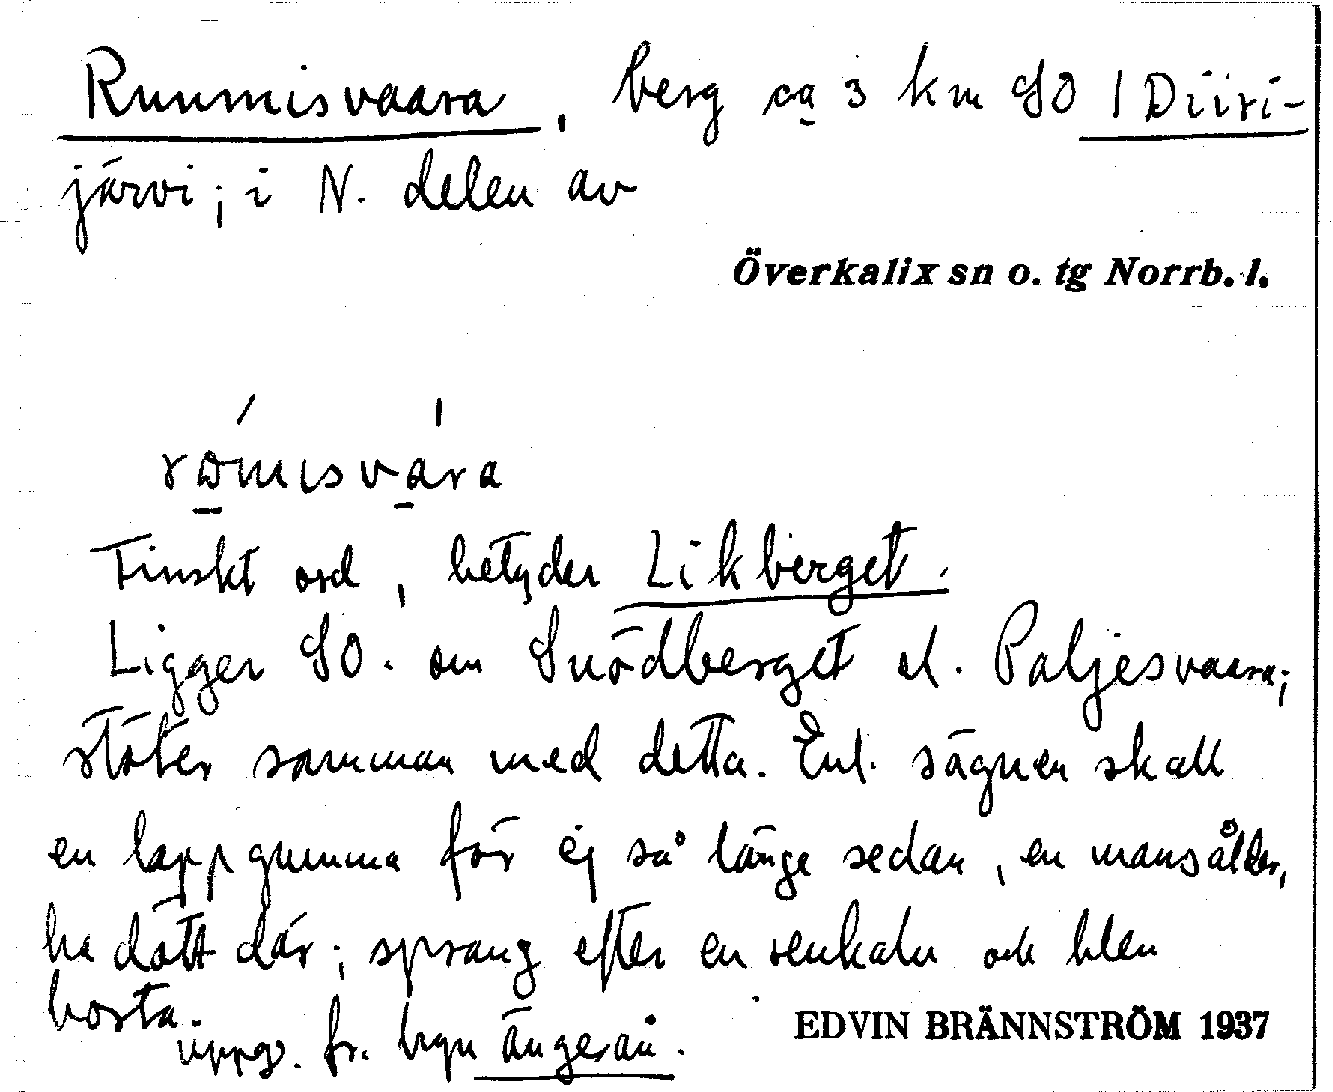 Ruumisvaara, berg ca 3 km SO l Diiri-
järvi; i N. delen av
Överkalix sn o. tg Norrb. l.
Finskt ord, betyder Likberget.
Ligger SO. om Snödberget el. Paljesvaara;
stöter samman med detta. Enl. sägnen skall
en lappgumma för ej så länge sedan, en mansålder,
ha dött där; sprang efter en renkalv och blev
borta.
uppg. fr. byn Ängeså.
EDVIN BRÄNNSTRÖM 1937